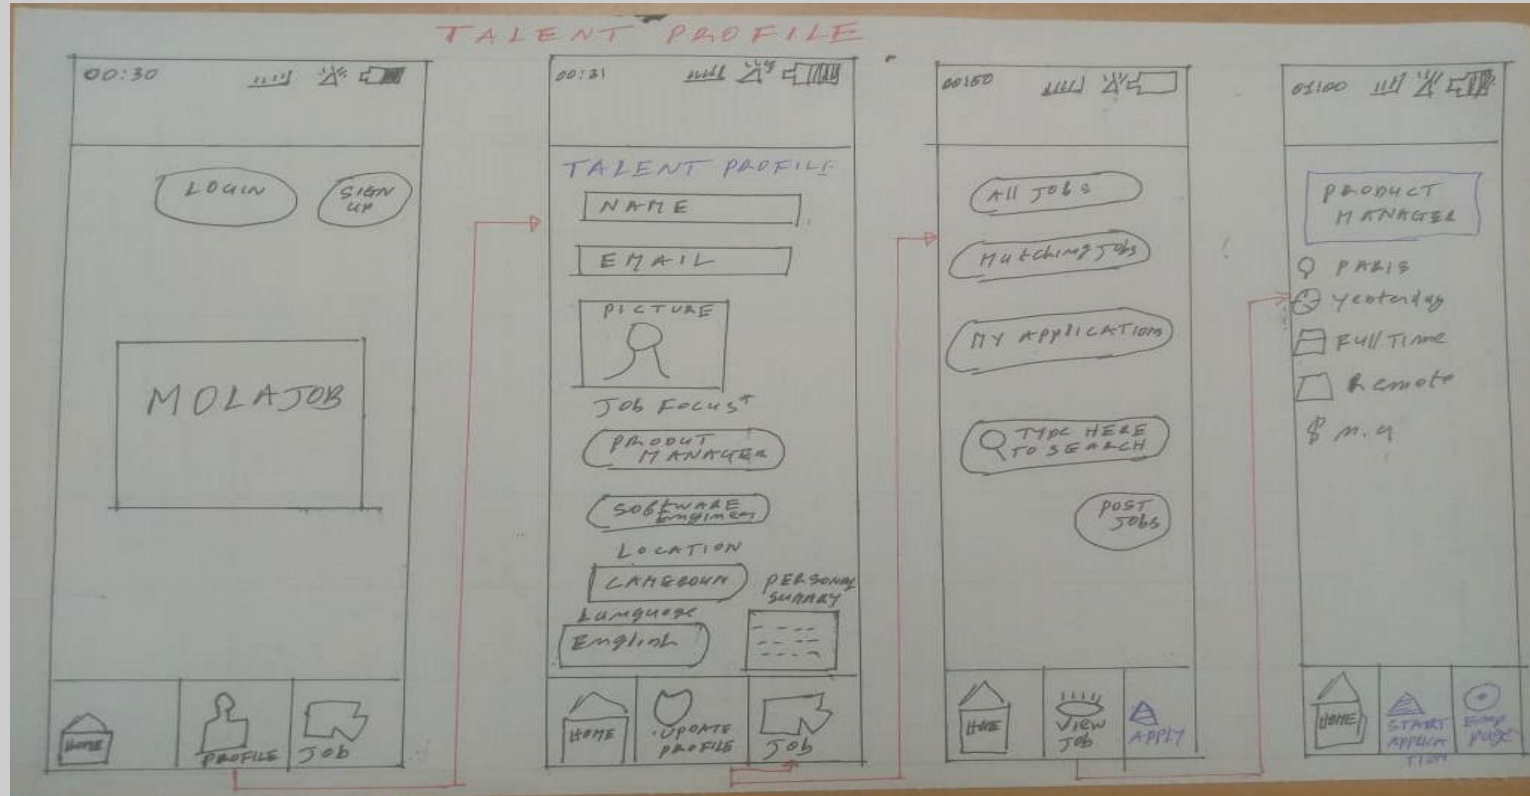 TALENT PROFILE
00:30
LOGIN
SIGN
UP
MOLAJOB
HOME
PROFILE
Job
00:31
TALENT PROFILE
NAME
EMAIL
PICTURE
Job Focus
PRODUT
MANAGER
SOFTWARE
Engineer
LOCATION
CAMEROUN
Language
English
PERSONAL
SUMARY
HOME
UPDATE
PROFILE
Job
00:50
All Jobs
Matching Jobs
MY APPLICATIONS
TYPE HERE
TO SEARCH
POST
Jobs
HOME
VIEW
Job
APPLY
01:00
PRODUCT
MANAGER
PARIS
yesterday
Full Time
Remote
$
HOME
START
APPLICA
TION
Emp
page